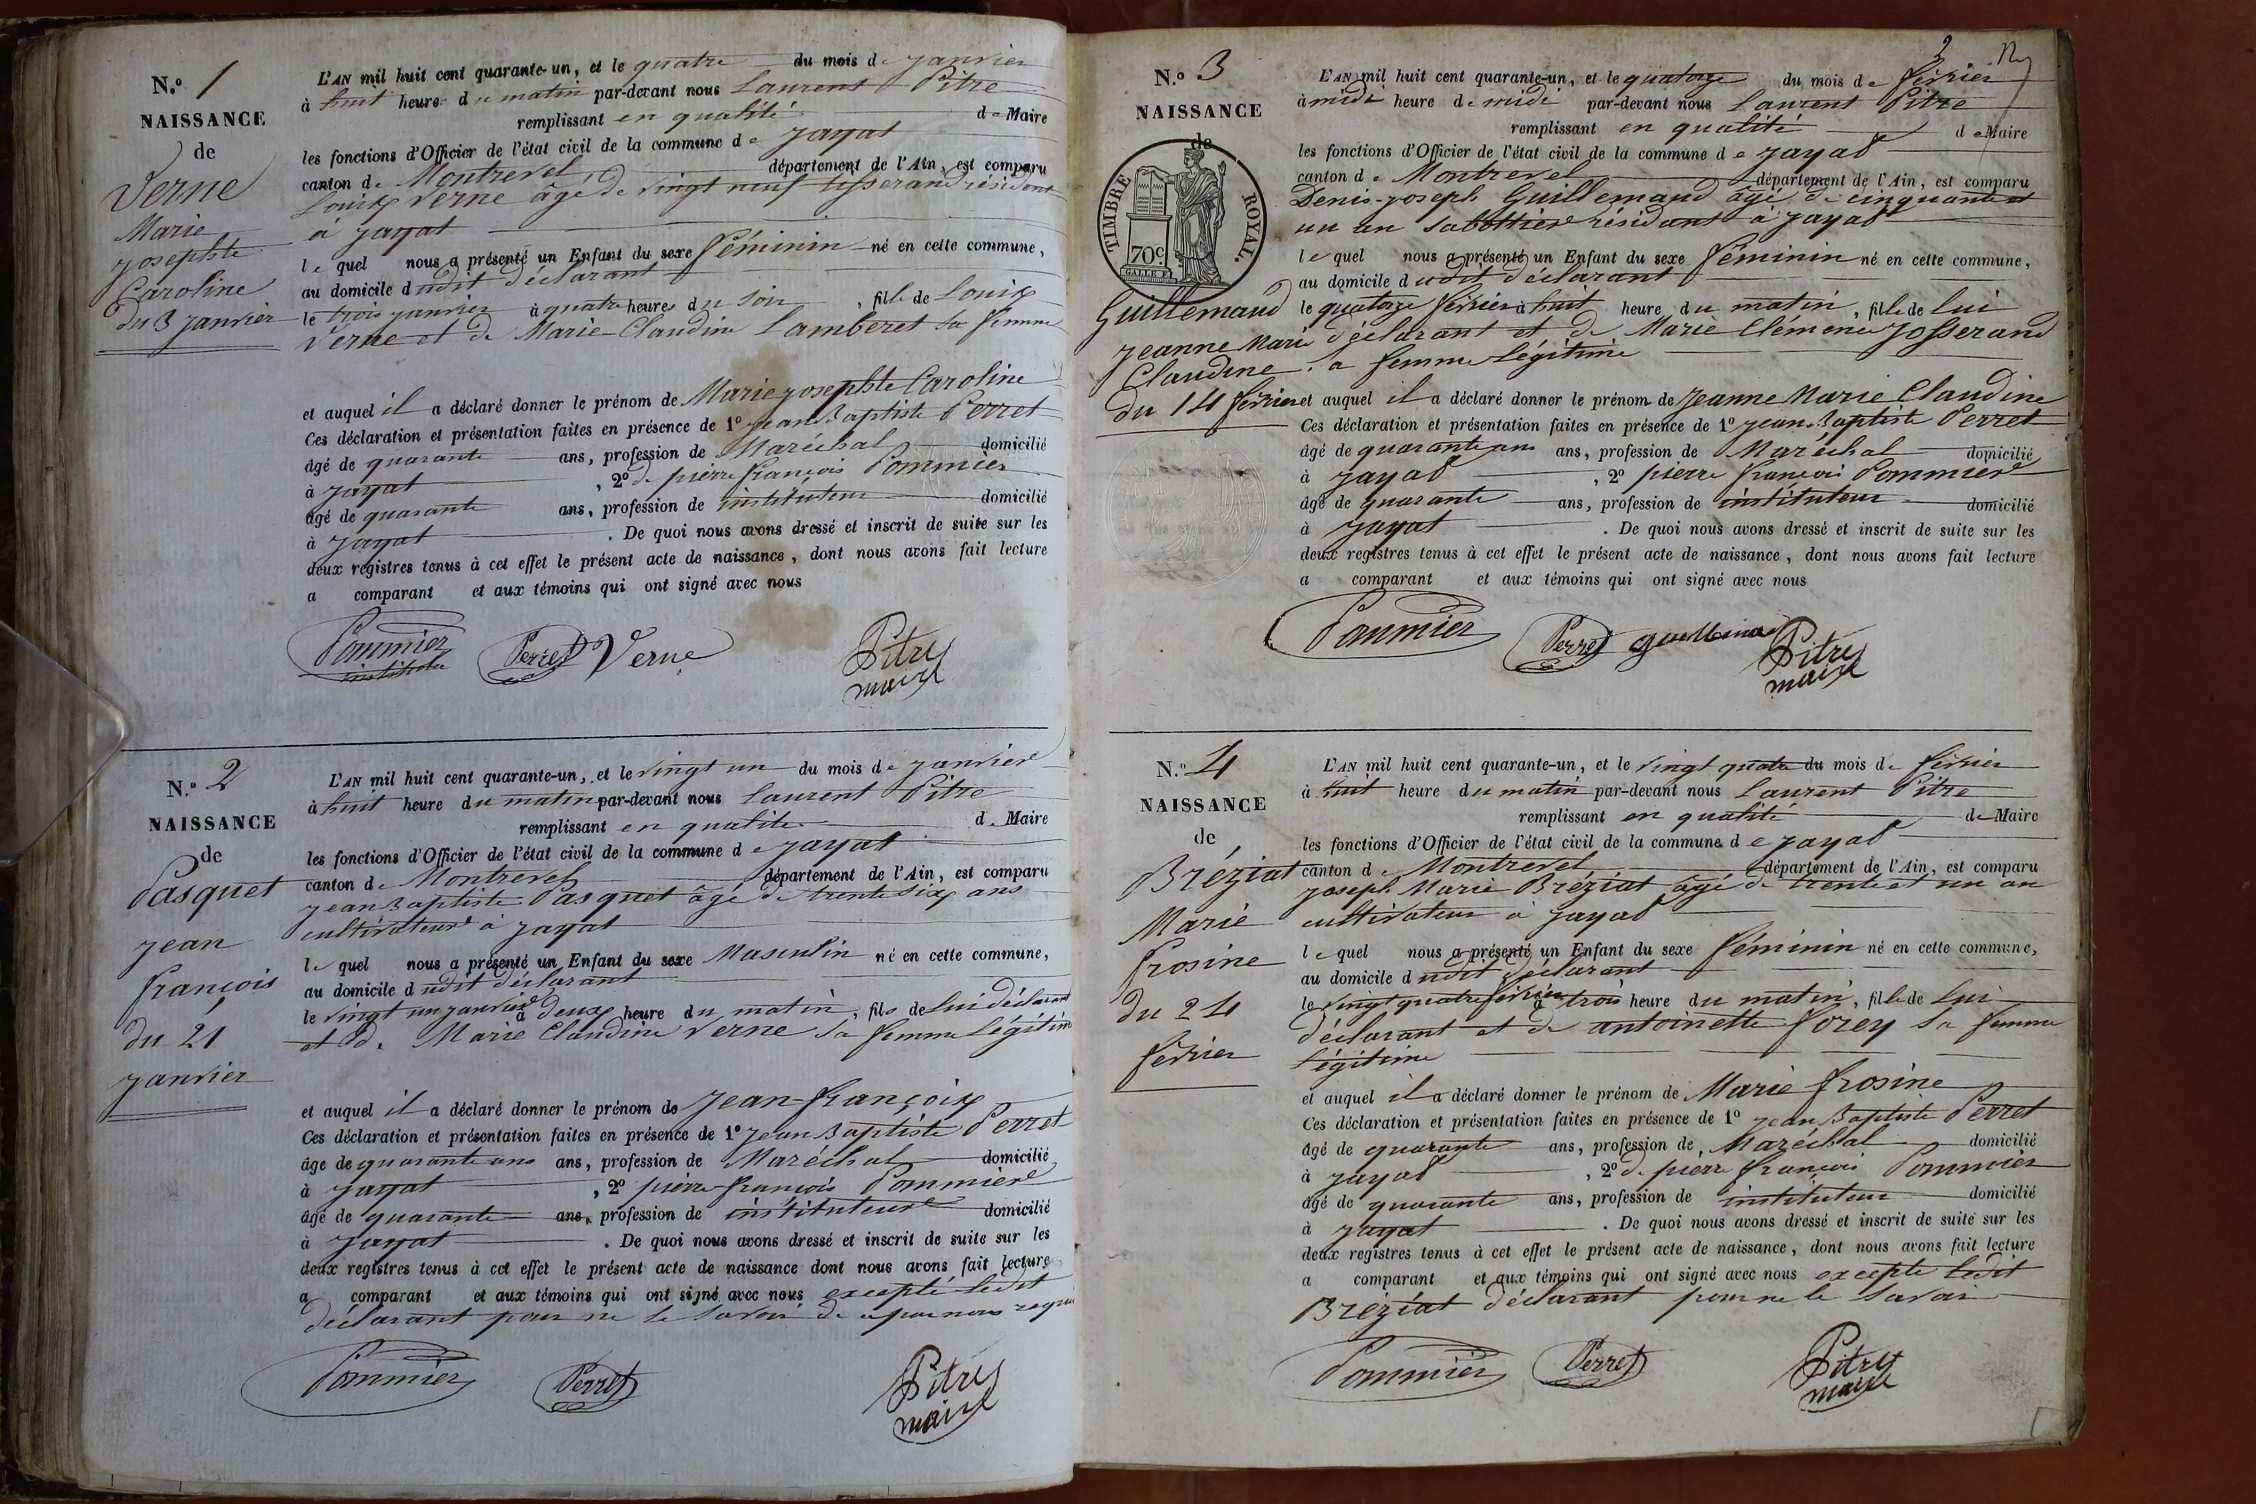 N.o 1
NAISSANCE
de
Verne
Marie
Josephte
Caroline
du 3 janvier
L'AN mil huit cent quarante-un, et le quatre du mois de janvier
à huit heure du matin par-devant nous Laurent Pitre
remplissant en qualité de Maire
les fonctions d'Officier de l'état civil de la commune de Jayat
canton de Montrevel département de l'Ain, est comparu
Louix Verne âgé de vingt neuf tisserand résidant
à Jayat
le quel nous a présenté un Enfant du sexe féminin né en cette commune,
au domicile dudit déclarant
le trois janvier à quatre heures du soir, fille de Louix
Verne et de Marie-Claudine Lamberet sa femme
et auquel il a déclaré donner le prénom de Marie Josephte Caroline
Ces déclaration et présentation faites en présence de 1o Jean Baptiste Perret
âgé de quarante ans, profession de Maréchal domicilié
à Jayat, 2o de pierre françois Pommier
âgé de quarante ans, profession de instituteur domicilié
à Jayat. De quoi nous avons dressé et inscrit de suite sur les
deux registres tenus à cet effet le présent acte de naissance, dont nous avons fait lecture
a comparant et aux témoins qui ont signé avec nous
Pommier Perret Verne Pitre
instituteur maire
N.o 2
NAISSANCE
de
Pasquet
jean
françois
du 21
janvier
L'AN mil huit cent quarante-un, et le vingt un du mois de janvier
à huit heure du matin par-devant nous Laurent Pitre
remplissant en qualité de Maire
les fonctions d'Officier de l'état civil de la commune de Jayat
canton de Montrevel département de l'Ain, est comparu
Jean Baptiste Pasquet âgé de trente six ans
cultivateur à Jayat
le quel nous a présenté un Enfant du sexe Masculin né en cette commune,
au domicile dudit déclarant
le vingt un janvier à deux heure du matin, fils de lui déclarant
et de Marie Claudine Verne sa femme légitime
et auquel il a déclaré donner le prénom de Jean-françoix
Ces déclaration et présentation faites en présence de 1o Jean Baptiste Perret
âge de quarante ans ans, profession de Maréchal domicilié
à Jayat, 2o pierre-françois Pommier
âgé de quarante ans, profession de instituteur domicilié
à Jayat. De quoi nous avons dressé et inscrit de suite sur les
deux registres tenus à cet effet le présent acte de naissance dont nous avons fait lecture
a comparant et aux témoins qui ont signé avec nous excepté ledit
déclarant pour ne le savoir de a par nous requis
Pommier Perret Pitre
maire
2
N.o 3
NAISSANCE
de
TIMBRE ROYAL.
70c
Guillemaud
Jeanne Marie
Claudine
du 14 février
L'AN mil huit cent quarante-un, et le quatorze du mois de février
à midi heure de midi par-devant nous Laurent Pitre
remplissant en qualité de Maire
les fonctions d'Officier de l'état civil de la commune de Jayat
canton de Montrevel département de l'Ain, est comparu
Denis-Joseph Guillemaud âgé de cinquante et
un an sabottier résidant à Jayat
le quel nous a présenté un Enfant du sexe féminin né en cette commune,
au domicile dudit déclarant
le quatorze février à huit heure du matin, fille de lui
déclarant et de Marie Clémence Josserand
sa femme légitime
et auquel il a déclaré donner le prénom de Jeanne Marie Claudine
Ces déclaration et présentation faites en présence de 1o Jean Baptiste Perret
âgé de quarante ans ans, profession de Maréchal domicilié
à Jayat, 2o pierre françois Pommier
âgé de quarante ans, profession de instituteur domicilié
à Jayat. De quoi nous avons dressé et inscrit de suite sur les
deux registres tenus à cet effet le présent acte de naissance, dont nous avons fait lecture
a comparant et aux témoins qui ont signé avec nous
Pommier Perret Pitre
maire
N.o 4
NAISSANCE
de
Bréziat
Marie
frosine
du 24
février
L'AN mil huit cent quarante-un, et le vingt quatre du mois de février
à huit heure du matin par-devant nous Laurent Pitre
remplissant en qualité de Maire
les fonctions d'Officier de l'état civil de la commune de Jayat
canton de Montrevel département de l'Ain, est comparu
Joseph Marie Bréziat âgé de trente et un an
cultivateur à Jayat
le quel nous a présenté un Enfant du sexe féminin né en cette commune,
au domicile dudit déclarant
le vingt quatre février à trois heure du matin, fille de lui
déclarant et de antoinette forey sa femme
légitime
et auquel il a déclaré donner le prénom de Marie frosine
Ces déclaration et présentation faites en présence de 1o Jean Baptiste Perret
âgé de quarante ans, profession de Maréchal domicilié
à Jayat, 2o de pierre françois Pommier
âgé de quarante ans, profession de instituteur domicilié
à Jayat. De quoi nous avons dressé et inscrit de suite sur les
deux registres tenus à cet effet le présent acte de naissance, dont nous avons fait lecture
a comparant et aux témoins qui ont signé avec nous excepte ledit
Bréziat déclarant pour ne le savoir
Pommier Perret Pitre
maire